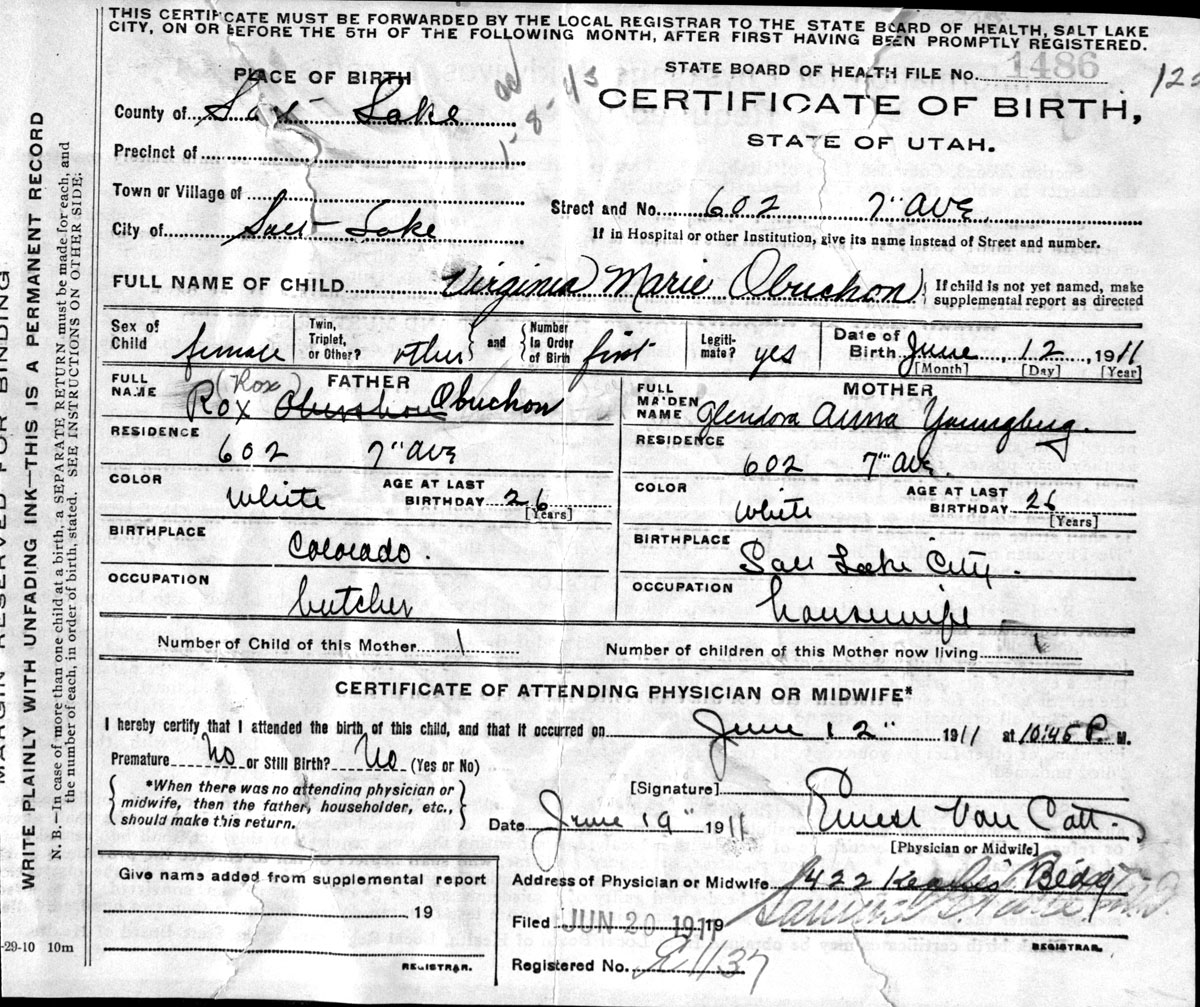 THIS CERTIFICATE MUST BE FORWARDED BY THE LOCAL REGISTRAR TO THE STATE BOARD OF HEALTH, SALT LAKE
CITY, ON OR BEFORE THE 5TH OF THE FOLLOWING MONTH, AFTER FIRST HAVING BEEN PROMPTLY REGISTERED.
PLACE OF BIRTH
STATE BOARD OF HEALTH FILE No. 1486
123
County of Salt Lake
CERTIFICATE OF BIRTH,
STATE OF UTAH.
Precinct of
Town or Village of
Street and No. 602 7" AVE
City of Salt Lake
If in Hospital or other Institution, give its name instead of Street and number.
FULL NAME OF CHILD Virginia Marie Obuchon
If child is not yet named, make
supplemental report as directed
Sex of Child female
Twin, Triplet, or Other? other
and
Number In Order of Birth first
Legiti- mate? yes
Date of Birth June, 12, 1911
[Month] [Day] [Year]
FULL NAME
FATHER
(Rox)
Rox Obuchon
FULL MAIDEN NAME
MOTHER
Glendora Anna Youngberg.
RESIDENCE
602 7" AVE
RESIDENCE
602 7" AVE
COLOR
White
AGE AT LAST BIRTHDAY 26
[Years]
COLOR
White
AGE AT LAST BIRTHDAY 26
[Years]
BIRTHPLACE
Colorado.
BIRTHPLACE
Salt Lake City.
OCCUPATION
butcher
OCCUPATION
housewife
Number of Child of this Mother 1
Number of children of this Mother now living 1
CERTIFICATE OF ATTENDING PHYSICIAN OR MIDWIFE*
I hereby certify that I attended the birth of this child, and that it occurred on June 12" 1911 at 10:45 P. M.
Premature No or Still Birth? No (Yes or No)
*When there was no attending physician or
midwife, then the father, householder, etc.,
should make this return.
[Signature]
Date June 19" 1911
Ernest Van Cott.
[Physician or Midwife]
Give name added from supplemental report
19
REGISTRAR.
Address of Physician or Midwife 422 Bldg
Filed JUN 20 1911 19
REGISTRAR.
Registered No. 1137
MARGIN RESERVED FOR BINDING
WRITE PLAINLY WITH UNFADING INK—THIS IS A PERMANENT RECORD
N. B.—In case of more than one child at a birth, a SEPARATE RETURN must be made for each, and
the number of each, in order of birth, stated. SEE INSTRUCTIONS ON OTHER SIDE.
-29-10 10m